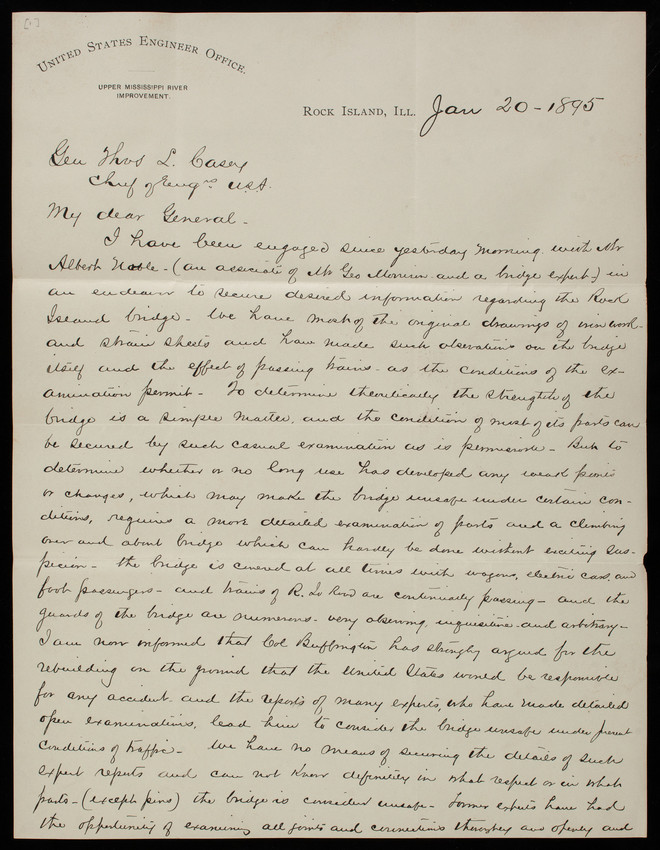 [1]
UNITED STATES ENGINEER OFFICE.
UPPER MISSISSIPPI RIVER
IMPROVEMENT.
ROCK ISLAND, ILL. Jan 20-1895
Gen Thos L. Casey
Chief of Engrs U.S.A.
My dear General-
I have been engaged since yesterday morning with Mr
Albert Noble- (an associate of Mr Geo Morison and a bridge expert-) in
an endeavor to secure desired information regarding the Rock
Island bridge- We have most of the original drawings of iron work-
and strain sheets and have made such observations on the bridge
itself and the effect of passing trains- as the conditions of the ex-
amination permit- To determine theoretically the strength of the
bridge is a simple matter, and the condition of most of its parts can
be secured by such casual examination as is permissible- But to
determine whether or no long use has developed any weak points
or changes, which may make the bridge unsafe under certain con-
ditions, requires a more detailed examination of parts and a climbing
over and about bridge which can hardly be done without exciting sus-
picion- the bridge is covered at all times with wagons, electric cars, and
foot passengers- and trains of R. Id Road are continually passing- and the
guards of the bridge are numerous- very observing inquisitive and arbitrary-
I am now informed that Col Buffington has strongly argued for the
rebuilding on the ground that the United States would be responsible
for any accident and the reports of many experts, who have made detailed
open examinations, lead him to consider the bridge unsafe under present
conditions of traffic- We have no means of securing the details of such
expert reports and can not know definitely in what respect or in what
parts- (except pins) the bridge is considered unsafe- Former experts have had
the opportunity of examining all joints and connections thoroughly and openly and